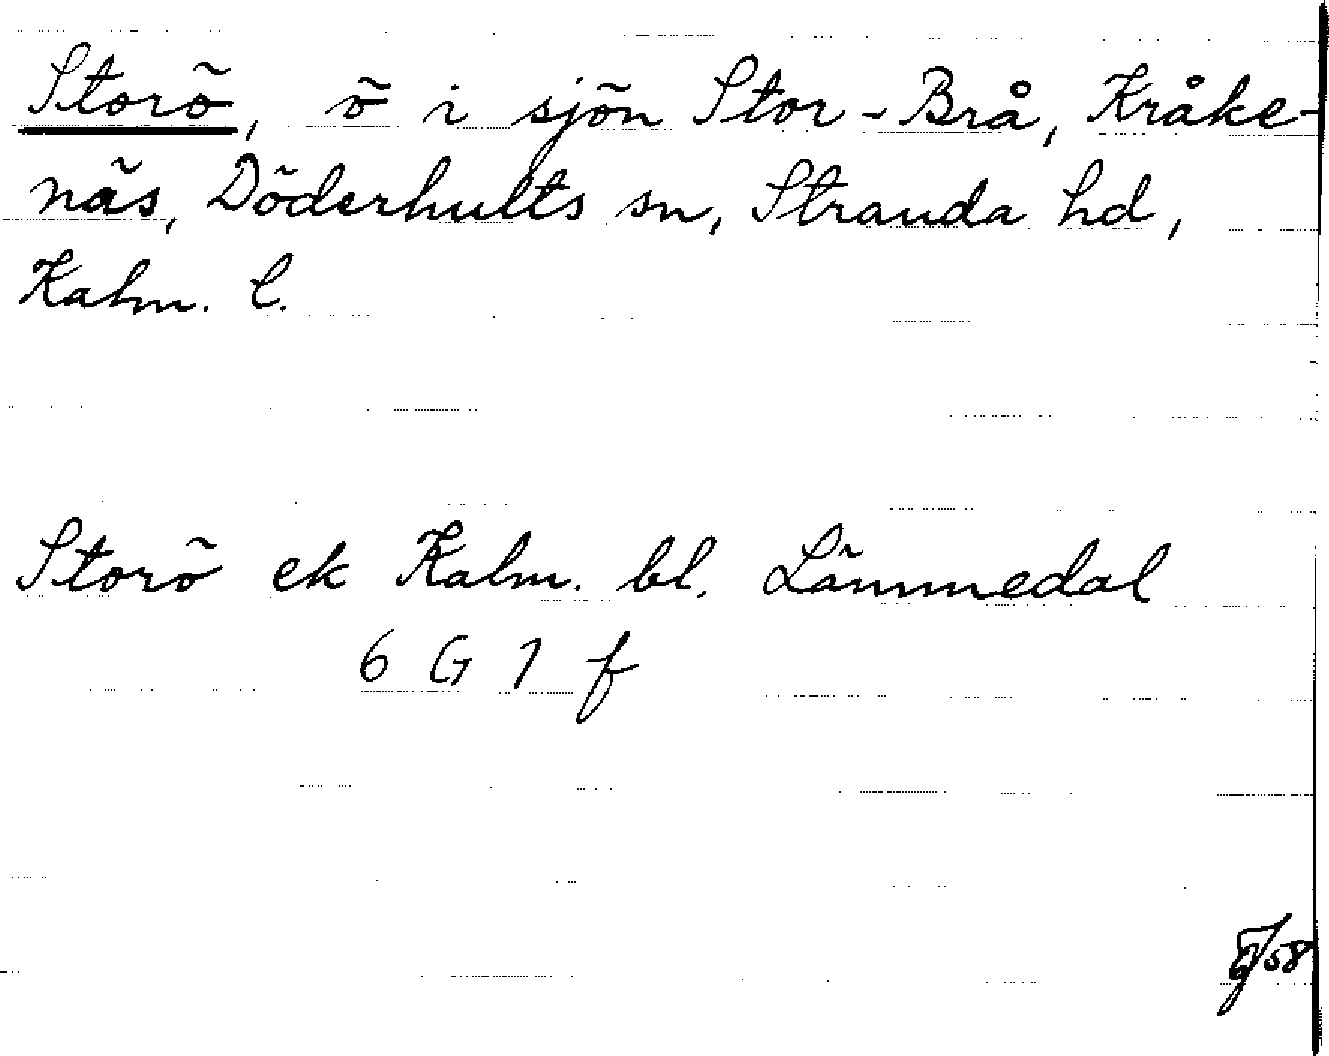 Storö, ö i sjön Stor-Brå, Kråke-
näs, Döderhults sn, Stranda hd,
Kalm. l.
Storö ek Kalm. bl. Lämmedal
6 G 1 f